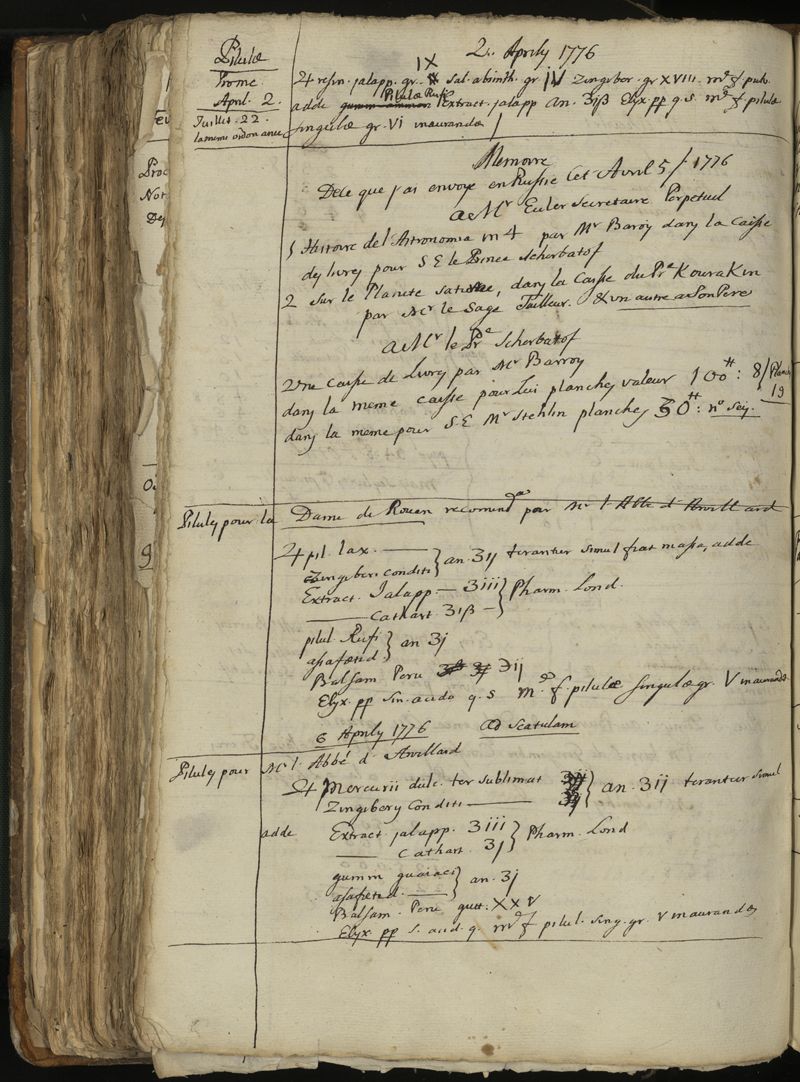 Pilulæ
Prome
April. 2.
Juillet. 22.
la meme ordonance
2. Aprily 1776
IX
♃ resin. jalapp. gr. Sal. absinth. gr IV Zingiber. gr XVIII. md f pulv.
Pilulæ Rufi
adde gumm ammon Extract. jalapp an. ʒiß Elyx pp q.s. md f pilulæ
singulæ gr. VI inaurandæ
Memoire
De ce que j'ai envoyé en Russie cet Avril 5 / 1776
a Mr Euler Secretaire Perpetuel
1 Histoire de l'Astronomia in 4 par Mr Baroy dans la Caisse
des livres pour S E le Prince Scherbatof
2 sur le Planete saturne, dans la Caisse du Pce Kourakin
par Mr le Sage Tailleur. & un autre a son Pere
a Mr le Pce Scherbatof
Une caisse de livres par Mr Barroy
dans la meme caisse pour Lui planches valeur 100#: 8/ Planch
19
dans la meme pour S.E Mr Stehlin planches 50#: no Seij.
Pilules pour la Dame de Rouen recomendée par Mr l'Abbé d'Arvillard
♃ pil. lax. ——
Zingiberi conditi } an ʒij terantur simul fiat massa, adde
Extract. Jalapp — ʒiii
—— Cathart. ʒiß — } Pharm. Lond.
pilul. Rufi
assafœtid } an ʒj
Balsam Peru ʒij
Elyx. pp sin. acido q. s md f. pilulæ singulæ gr. V inaurandæ
6 Aprily 1776 ad Scatulam
Pilules pour Mr l'Abbé d'Arvillard
♃ Mercurii dulc. ter sublimat
Zingibery Conditi —— } an. ʒii terantur simul
adde Extract. jalapp. ʒiii
—— Cathart. ʒj } Pharm. Lond
gumm guaiaci
assafœtid. —— } an. ʒj
Balsam. Peru gutt. XXV
Elyx. pp s. acid. q. md f pilul. sing. gr. V inaurandæ